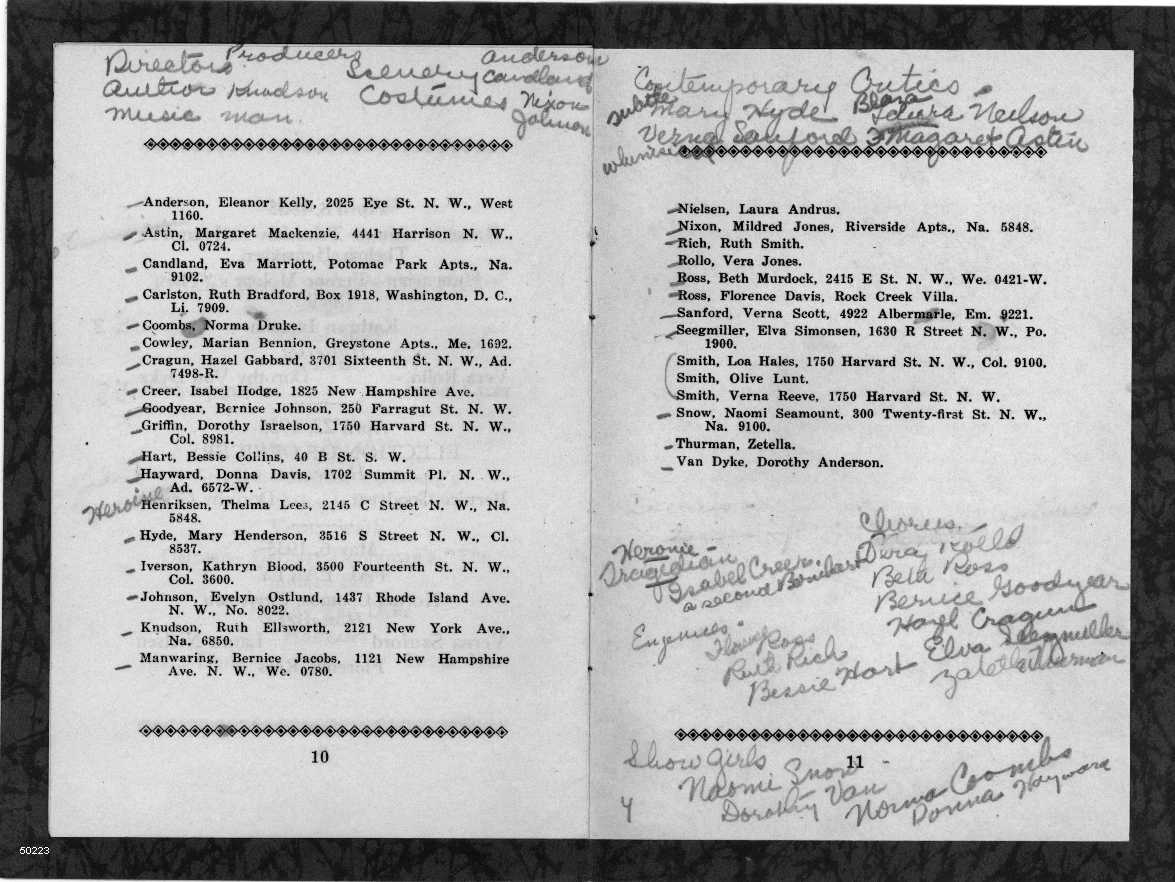 Directors Producers Anderson
Scenery Candland
Author Knudson Costumes Nixon
Music man. Johnson
Anderson, Eleanor Kelly, 2025 Eye St. N. W., West
1160.
Astin, Margaret Mackenzie, 4441 Harrison N. W.,
Cl. 0724.
Candland, Eva Marriott, Potomac Park Apts., Na.
9102.
Carlston, Ruth Bradford, Box 1918, Washington, D. C.,
Li. 7909.
Coombs, Norma Druke.
Cowley, Marian Bennion, Greystone Apts., Me. 1692.
Cragun, Hazel Gabbard, 3701 Sixteenth St. N. W., Ad.
7498-R.
Creer, Isabel Hodge, 1825 New Hampshire Ave.
Goodyear, Bernice Johnson, 250 Farragut St. N. W.
Griffin, Dorothy Israelson, 1750 Harvard St. N. W.,
Col. 8981.
Hart, Bessie Collins, 40 B St. S. W.
Hayward, Donna Davis, 1702 Summit Pl. N. W.,
Ad. 6572-W.
Heroine
Henriksen, Thelma Lees, 2145 C Street N. W., Na.
5848.
Hyde, Mary Henderson, 3516 S Street N. W., Cl.
8537.
Iverson, Kathryn Blood, 3500 Fourteenth St. N. W.,
Col. 3600.
Johnson, Evelyn Ostlund, 1437 Rhode Island Ave.
N. W., No. 8022.
Knudson, Ruth Ellsworth, 2121 New York Ave.,
Na. 6850.
Manwaring, Bernice Jacobs, 1121 New Hampshire
Ave. N. W., We. 0780.
10
Contemporary Critics
subtle Mary Hyde Laura Neilson
Verna Sanford Magaret Astin
Nielsen, Laura Andrus.
Nixon, Mildred Jones, Riverside Apts., Na. 5848.
Rich, Ruth Smith.
Rollo, Vera Jones.
Ross, Beth Murdock, 2415 E St. N. W., We. 0421-W.
Ross, Florence Davis, Rock Creek Villa.
Sanford, Verna Scott, 4922 Albermarle, Em. 9221.
Seegmiller, Elva Simonsen, 1630 R Street N. W., Po.
1900.
Smith, Loa Hales, 1750 Harvard St. N. W., Col. 9100.
Smith, Olive Lunt.
Smith, Verna Reeve, 1750 Harvard St. N. W.
Snow, Naomi Seamount, 300 Twenty-first St. N. W.,
Na. 9100.
Thurman, Zetella.
Van Dyke, Dorothy Anderson.
Heronie
Tragedian
Isabel Creer
a second Bernhardt
Engenues
Ross
Ruth Rich
Bessie Hart
Chorus
Rollo
Beth Ross
Bernice Goodyear
Hazel Cragun
Elva Seegmuller
Show Girls
Naomi Snow
Dorothy Van
Norma Coombs
Donna Hayward
11
50223